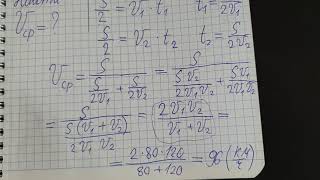 Найти
S/2 = V₁ · t₁   t₁ = S/2V₁
Vср = ?
S/2 = V₂ · t₂   t₂ = S/2V₂
Vср = S/(S/2V₁ + S/2V₂) = S/(S·V₂/2V₁V₂ + SV₁/2V₁V₂) =
= S/(S(V₁ + V₂)/2V₁V₂) = 2V₁V₂/(V₁ + V₂) =
= 2·80·120/(80 + 120) = 96 (км/ч)